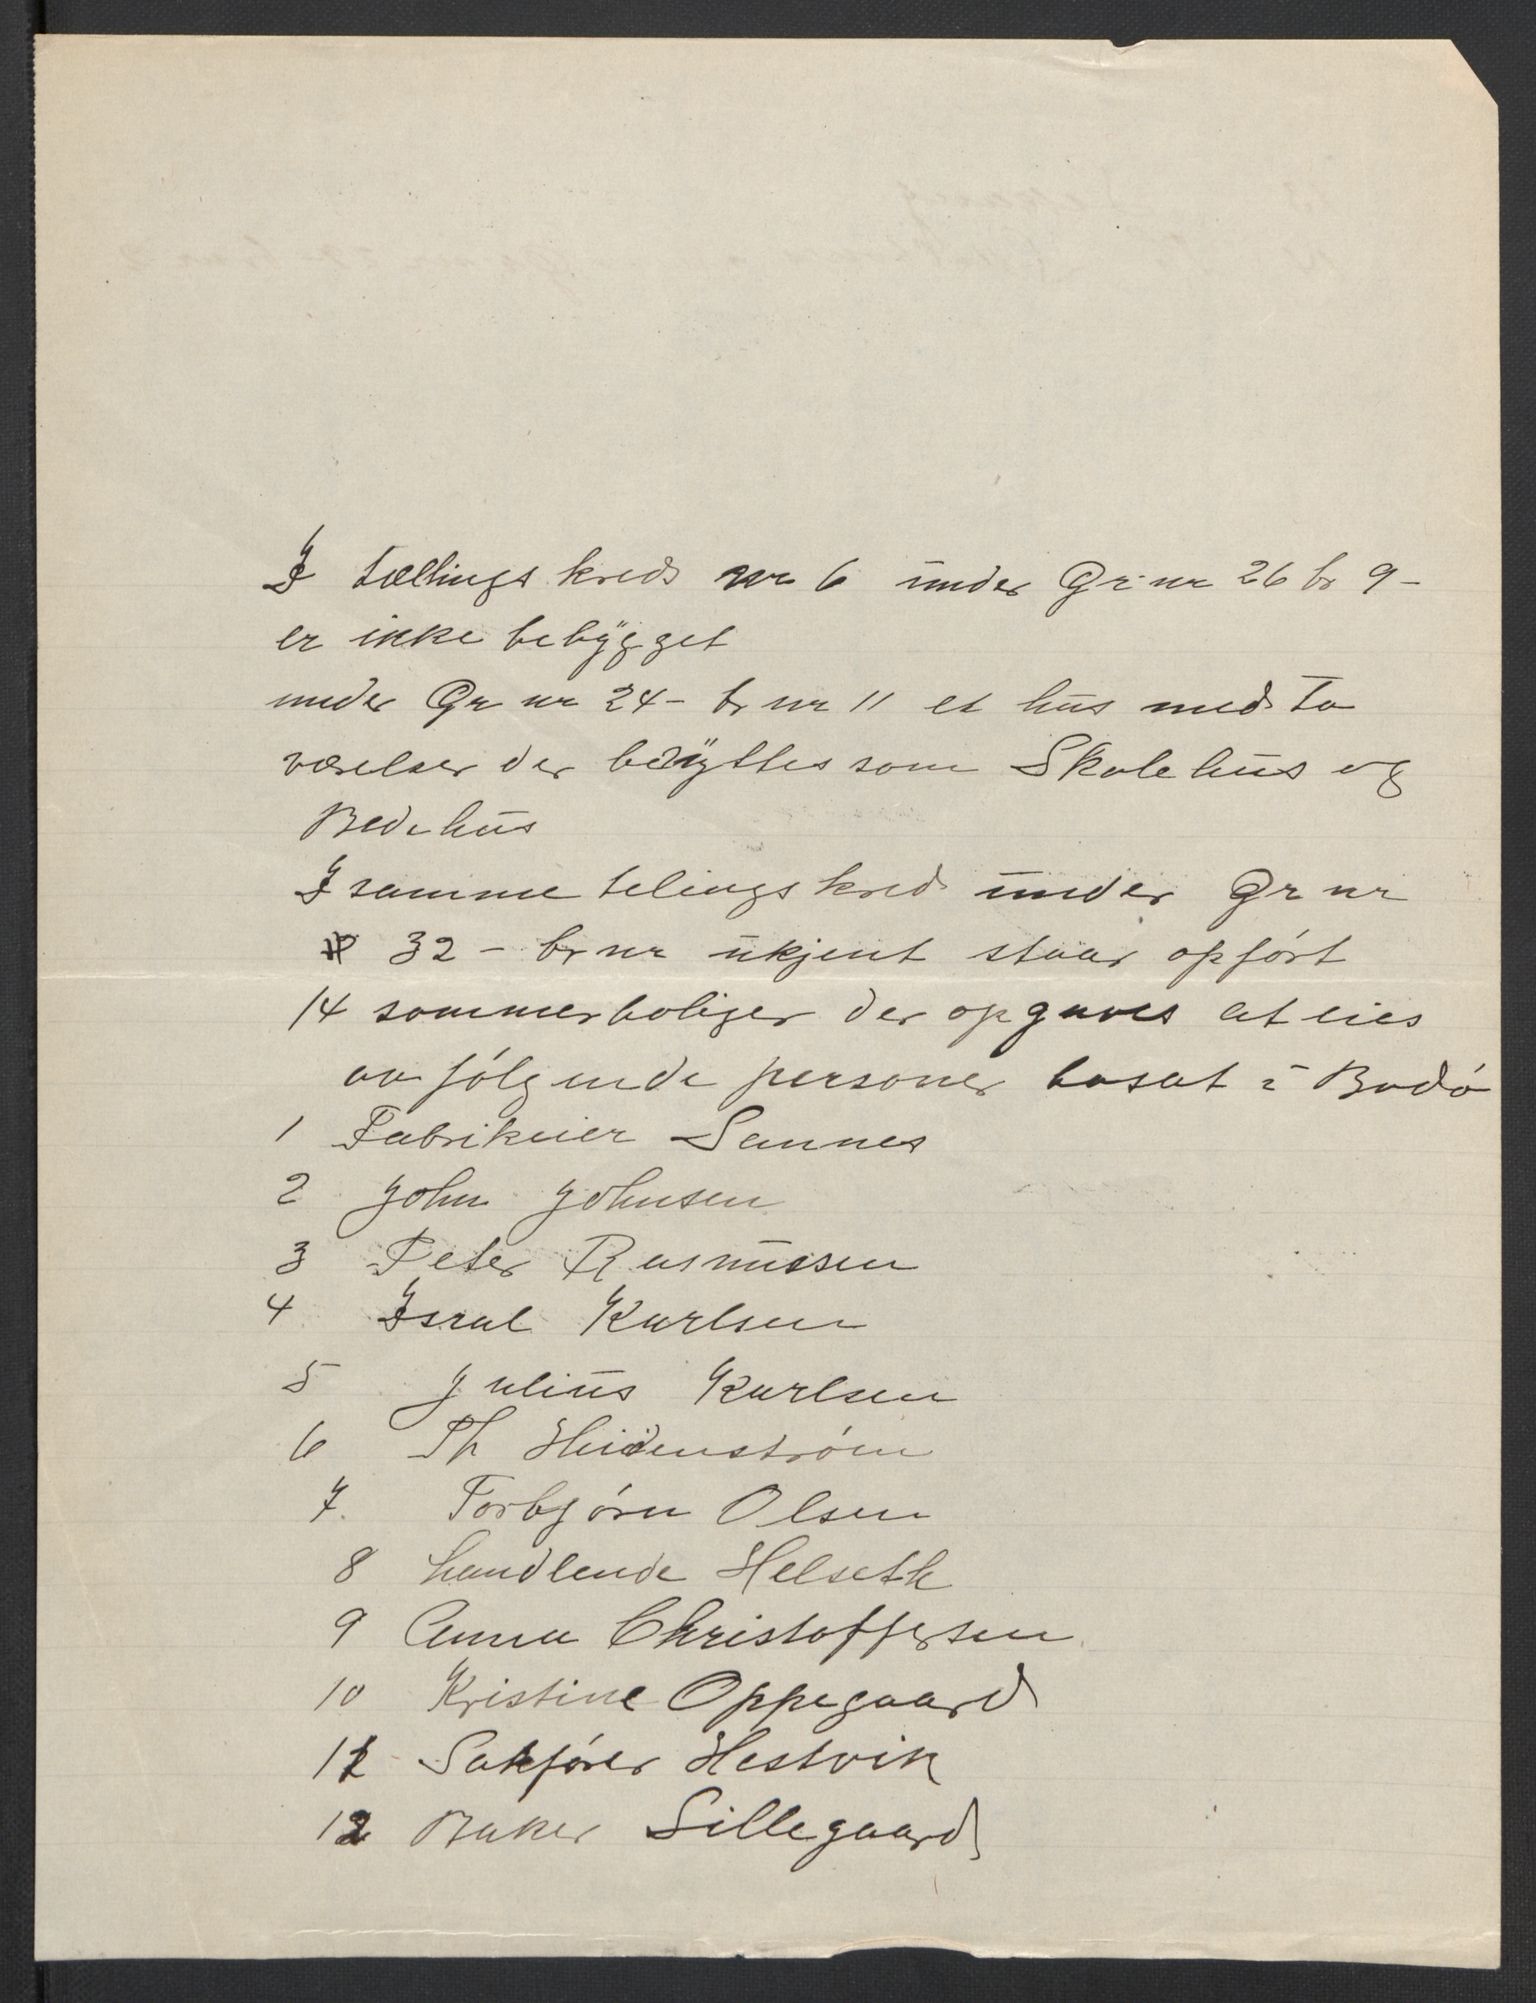 I tællings kreds nr 6 under Gr nr 26 br 9 –
er ikke bebygget
under Gr nr 24 – br nr 11 et hus med to
værelser der benyttes som Skolehus og
Bedehus
I samme telings kreds under Gr nr
32 – br nr ukjent staar opført
14 sommerboliger der opgaves at eies
av følgende personer bosat i Bodø
1 Fabrikeier Sannes
2 John Johnsen
3 Peter Rasmussen
4 Isral Karlsen
5 Julius Karlsen
6 Th Hidenstrøm
7. Torbjørn Olsen
8 handlende Helseth
9 Anna Christoffersen
10 Kristine Oppegaard
11 Sakfører Hestvik
12 Baker Sillegaard